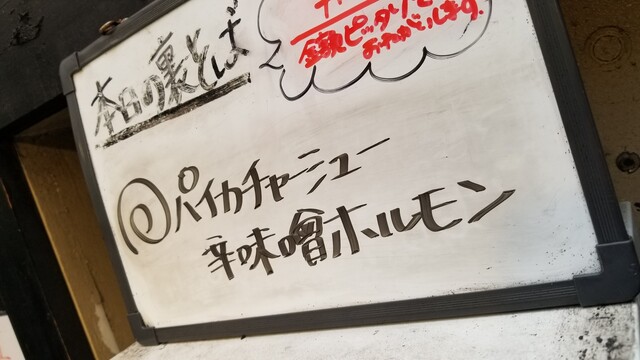 本日の裏そば
金額ピッタリで
おねがいします.
パイカチャーシュー
辛味噌ホルモン